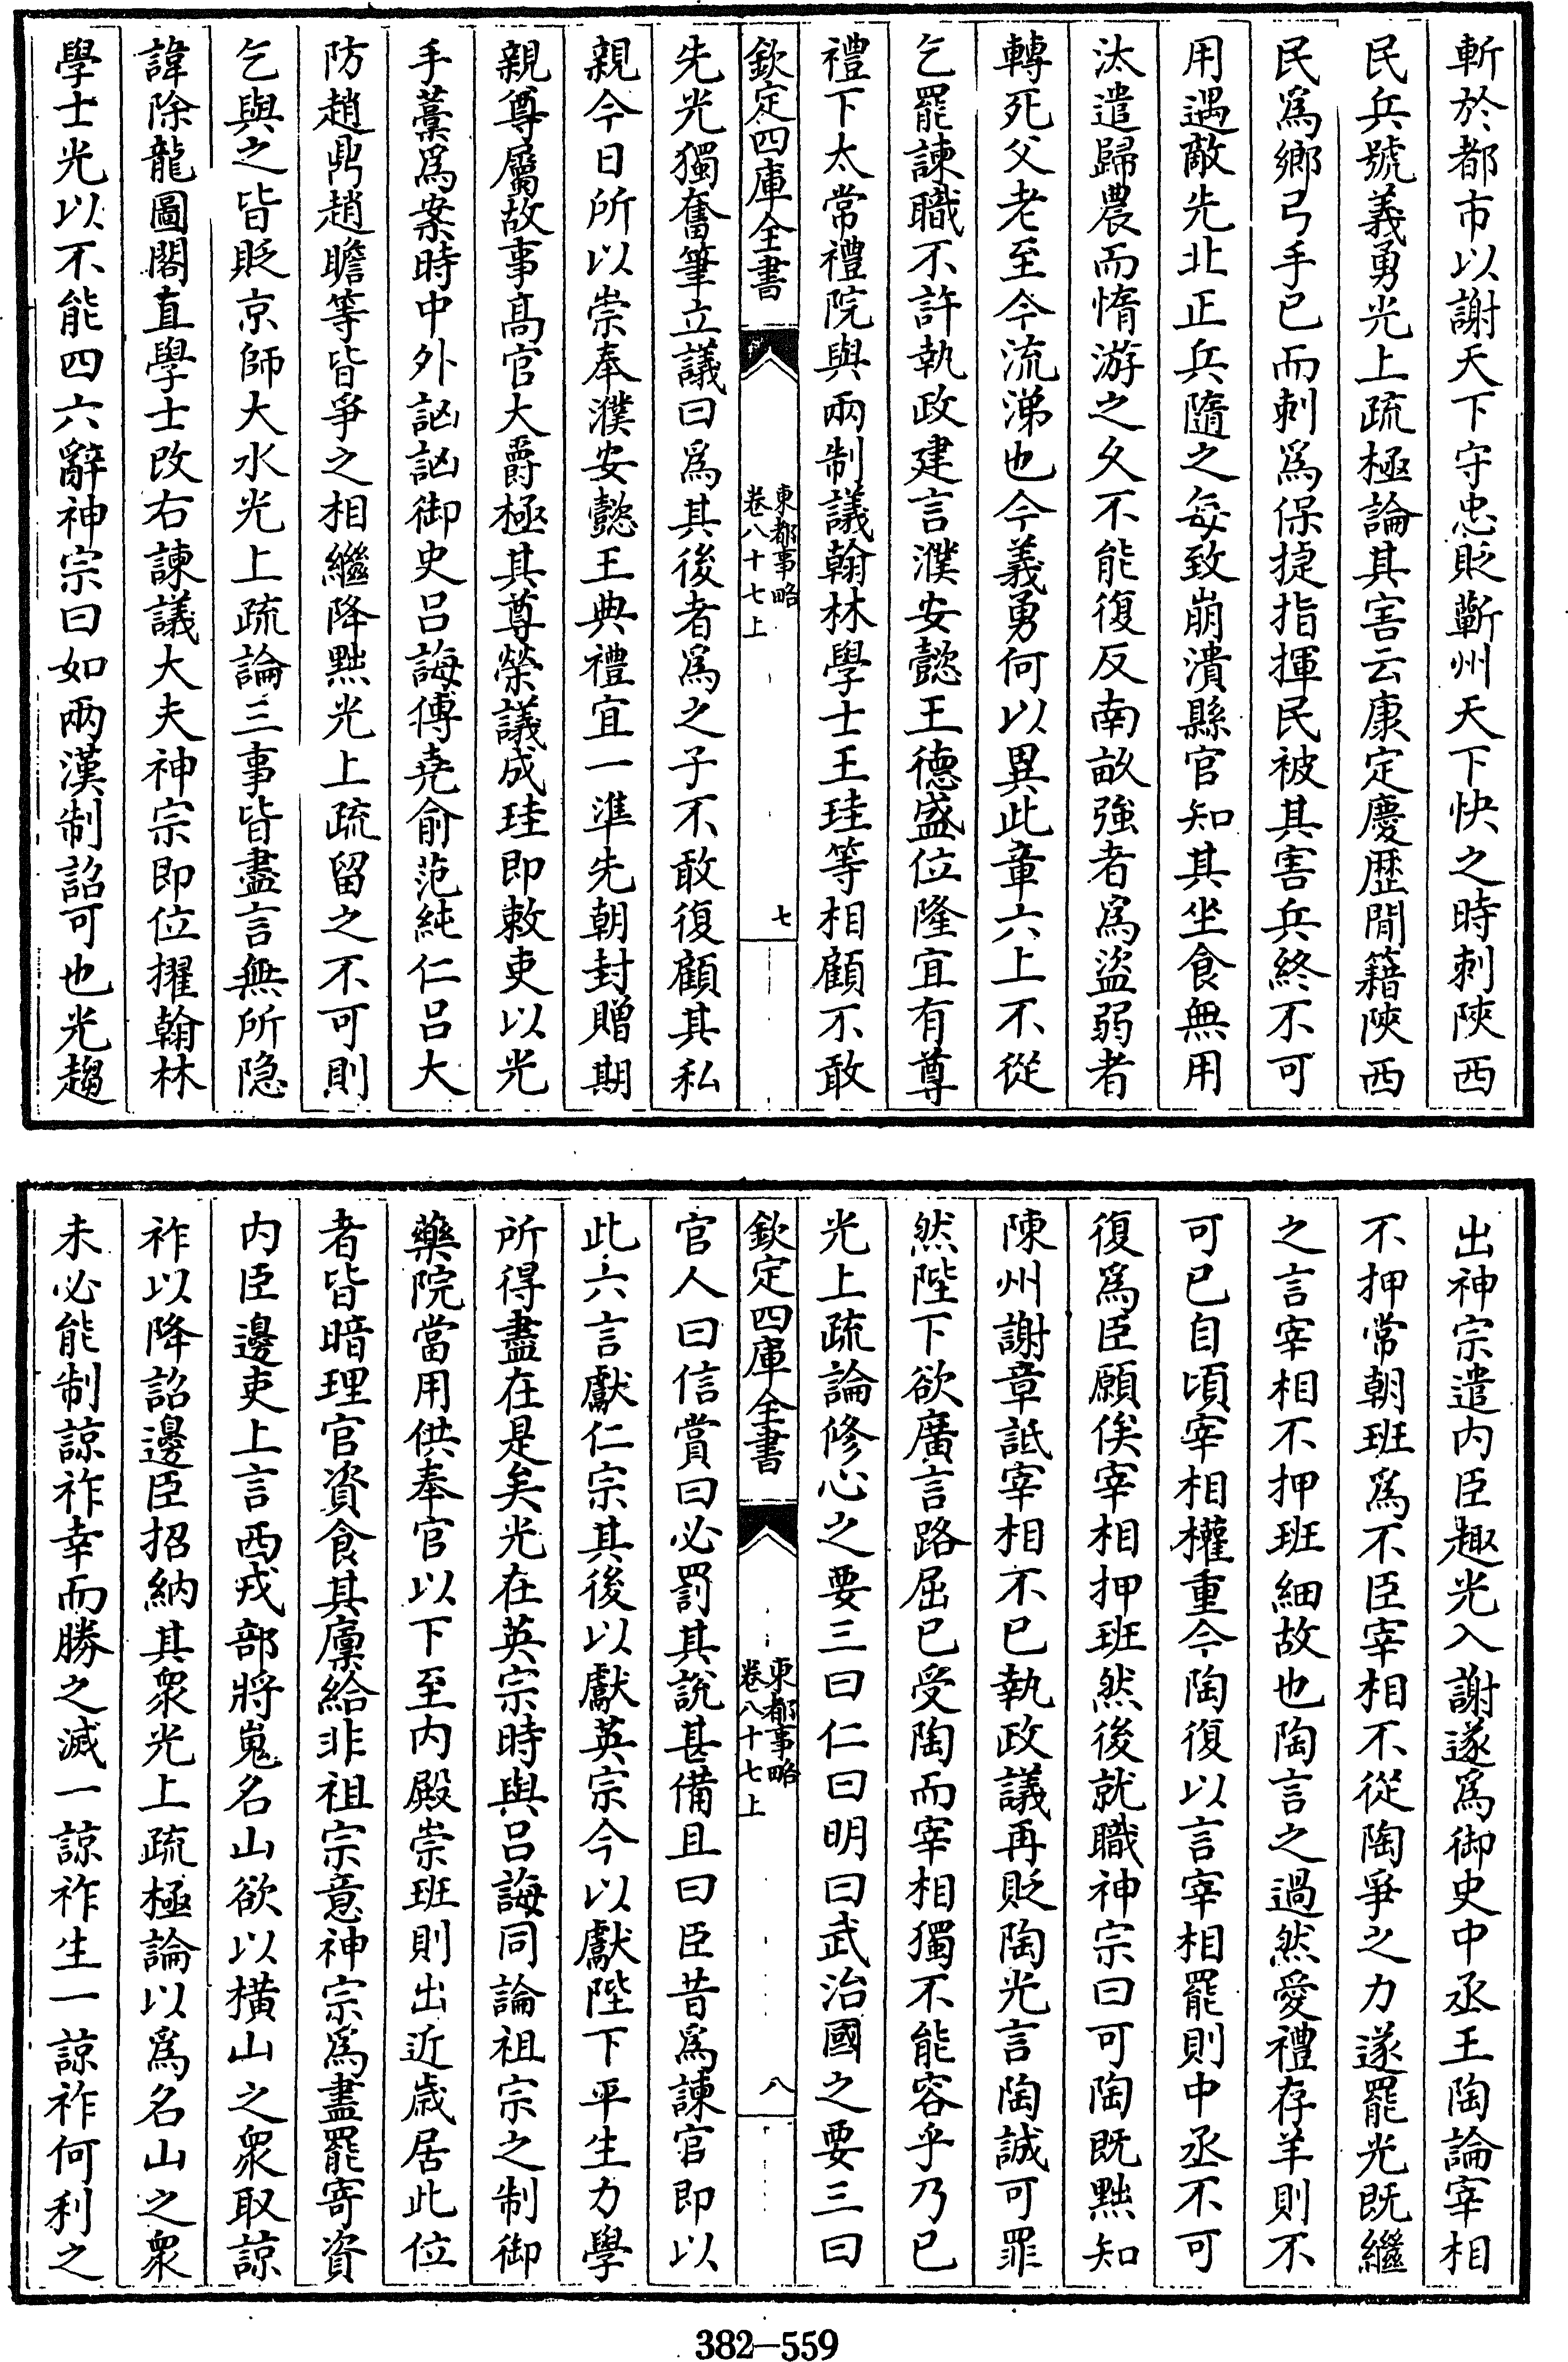 斬於都市以謝天下守忠貶蘄州天下快之時刺陜西
民兵號義勇光上疏極論其害云康定慶歷間籍陜西
民為鄉弓手已而刺為保捷指揮民被其害兵終不可
用遇敵先北正兵隨之每致崩潰縣官知其坐食無用
汰遣歸農而惰游之久不能復反南畝強者為盜弱者
轉死父老至今流涕也今義勇何以異此章六上不從
乞罷諫職不許執政建言濮安懿王德盛位隆宜有尊
禮下太常禮院與兩制議翰林學士王珪等相顧不敢
欽定四庫全書 東都事略 卷八十七上 七
先光獨奮筆立議曰為其後者為之子不敢復顧其私
親今日所以崇奉濮安懿王典禮宜一準先朝封贈期
親尊屬故事高官大爵極其尊榮議成珪即敕吏以光
手藁為案時中外訩訩御史呂誨傅堯俞范純仁呂大
防趙鼎趙瞻等皆爭之相繼降黜光上疏留之不可則
乞與之皆貶京師大水光上疏論三事皆盡言無所隱
諱除龍圖閣直學士改右諫議大夫神宗即位擢翰林
學士光以不能四六辭神宗曰如兩漢制詔可也光趨
出神宗遣内臣趣光入謝遂為御史中丞王陶論宰相
不押常朝班為不臣宰相不從陶爭之力遂罷光既繼
之言宰相不押班細故也陶言之過然愛禮存羊則不
可已自頃宰相權重今陶復以言宰相罷則中丞不可
復為臣願俟宰相押班然後就職神宗曰可陶既黜知
陳州謝章詆宰相不已執政議再貶陶光言陶誠可罪
然陛下欲廣言路屈已受陶而宰相獨不能容乎乃已
光上疏論修心之要三曰仁曰明曰武治國之要三曰
欽定四庫全書 東都事略 卷八十七上 八
官人曰信賞曰必罰其說甚備且曰臣昔為諫官即以
此六言獻仁宗其後以獻英宗今以獻陛下平生力學
所得盡在是矣光在英宗時與呂誨同論祖宗之制御
藥院當用供奉官以下至内殿崇班則出近歲居此位
者皆暗理官資食其廩給非祖宗意神宗為盡罷寄資
内臣邊吏上言西戎部將嵬名山欲以橫山之衆取諒
祚以降詔邊臣招納其衆光上疏極論以為名山之衆
未必能制諒祚幸而勝之滅一諒祚生一諒祚何利之
382-559